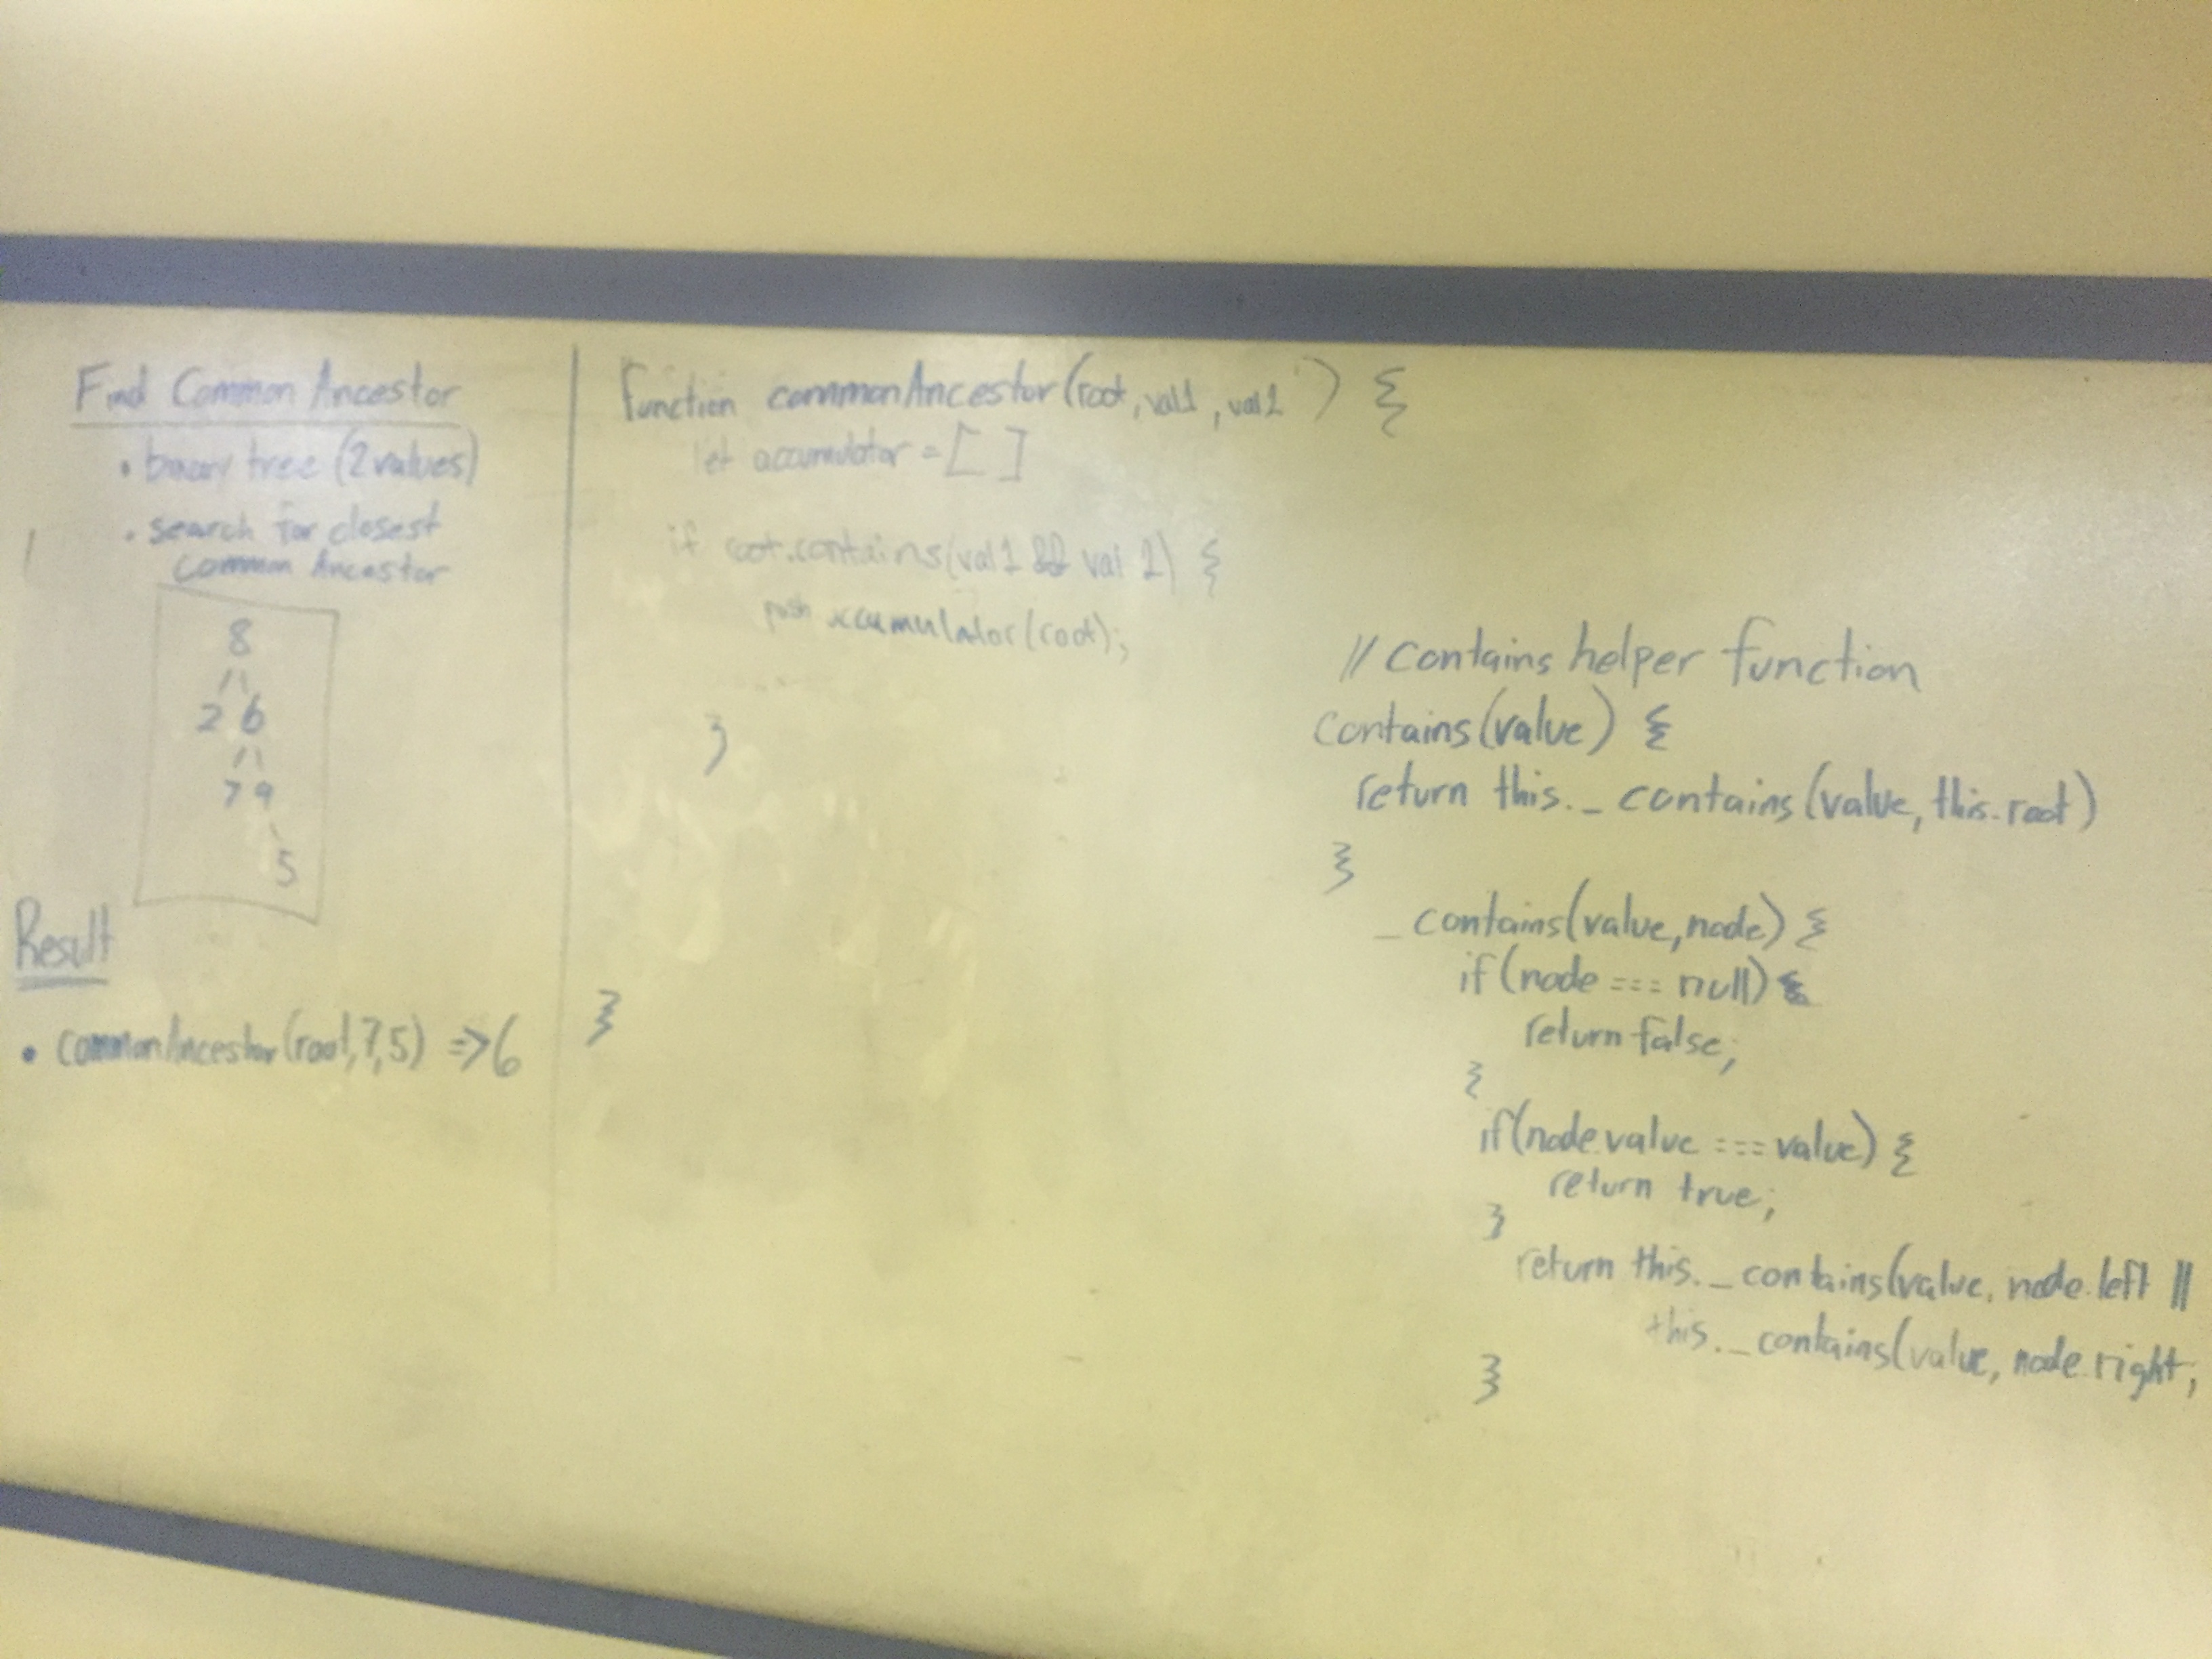 Find Common Ancestor
• binary tree (2 values)
• search for closest
common Ancestor
8
/ \
2 6
/ \
7 9
\
5
Result
• commonAncestor(root,7,5) => 6
function commonAncestor(root, val1, val2) {
let accumulator = [ ]
if root.contains(val1 && val 2) {
push accumulator(root);
}
}
// contains helper function
contains(value) {
return this._contains(value, this.root)
}
_contains(value, node) {
if(node === null) {
return false;
{
if(node.value === value) {
return true;
}
return this._contains(value, node.left ||
this._contains(value, node.right;
}